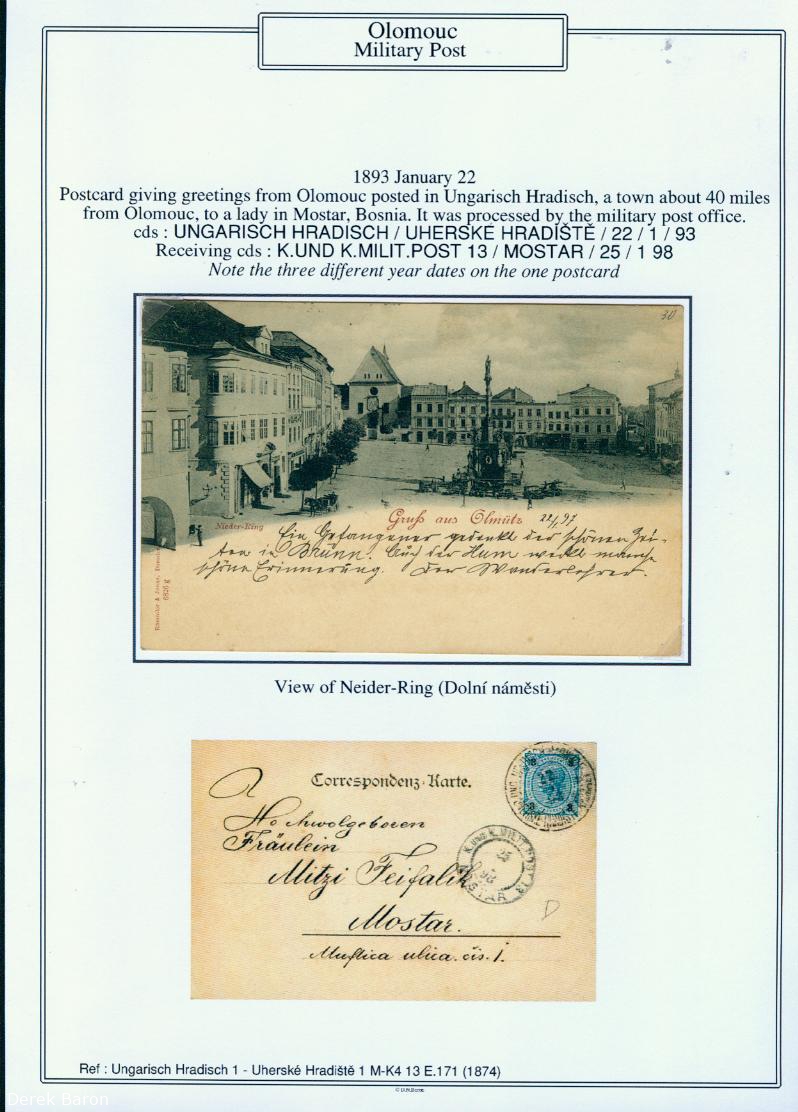 Olomouc
Military Post
1893 January 22
Postcard giving greetings from Olomouc posted in Ungarisch Hradisch, a town about 40 miles
from Olomouc, to a lady in Mostar, Bosnia. It was processed by the military post office.
cds : UNGARISCH HRADISCH / UHERSKÉ HRADIŠTĚ / 22 / 1 / 93
Receiving cds : K.UND K.MILIT.POST 13 / MOSTAR / 25 / 1 98
Note the three different year dates on the one postcard
30
Nieder-Ring
Gruß aus Olmütz 22/1 97
Ein Gefangener gedenkt der schönen Zei-
ten in Brünn. Auch der Hum weckt manche
schöne Erinnerung. Der Wanderlehrer.
6826 g
View of Neider-Ring (Dolní náměsti)
Correspondenz-Karte.
Hochwolgeboren
Fräulein
Mitzi Feifalik
Mostar.
ulica. čis. 1.
K. UND K. MILIT. POST 13
25
98
MOSTAR
D
Ref : Ungarisch Hradisch 1 - Uherské Hradiště 1 M-K4 13 E.171 (1874)
© D.N.Baron
Derek Baron